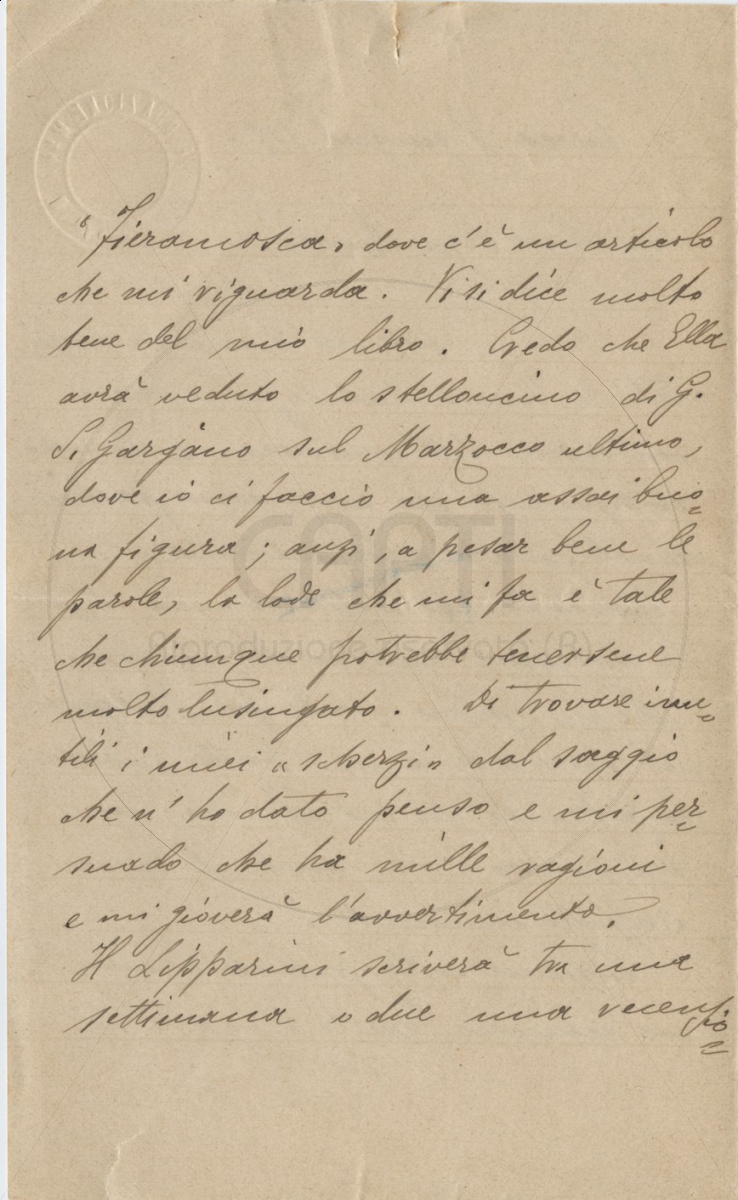 "Fieramosca, dove c'è un articolo
che mi riguarda. Vi si dice molto
bene del mio libro. Credo che Ella
avrà veduto lo stelloncino di G.
S. Gargàno sul Marzocco ultimo,
dove io ci faccio una assai buo=
na figura; anzi, a pesar bene le
parole, la lode che mi fa è tale
che chiunque potrebbe tenersene
molto lusingato. Di trovare inu=
tili i miei "scherzi" dal saggio
che n'ho dato penso e mi per=
suado che ha mille ragioni
e mi gioverà l'avvertimento.
Il Lipparini scriverà tra una
settimana o due una recensio=